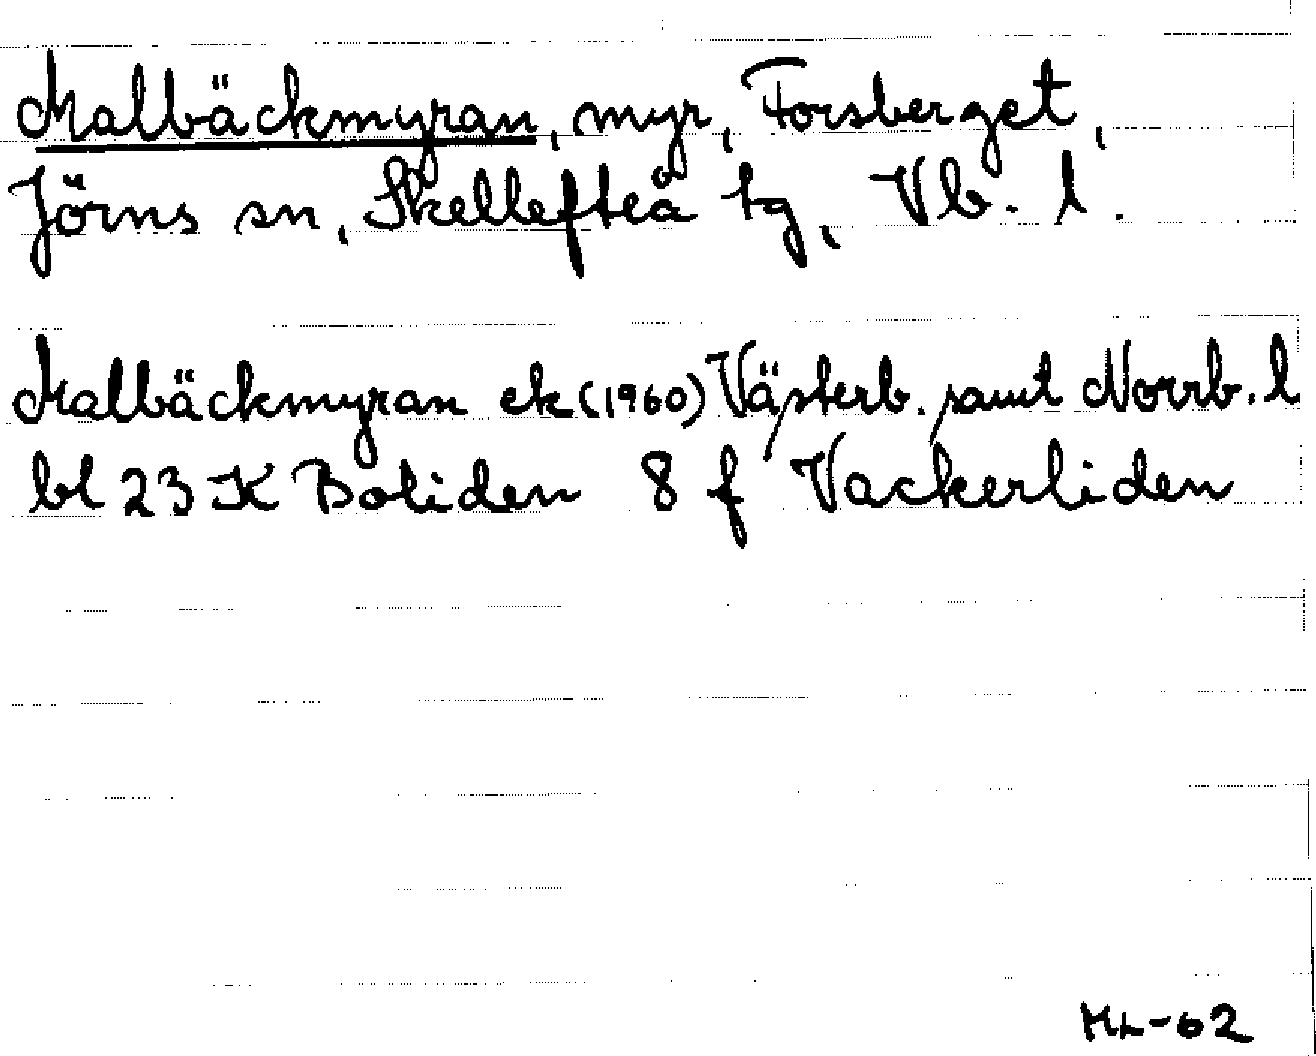 Malbäckmyran, myr, Forsberget,
Jörns sn, Skellefteå tg, Vb. l.
Malbäckmyran ek (1960) Västerb. samt Norrb. l
bl 23 K Boliden 8 f Vackerliden
ML-62